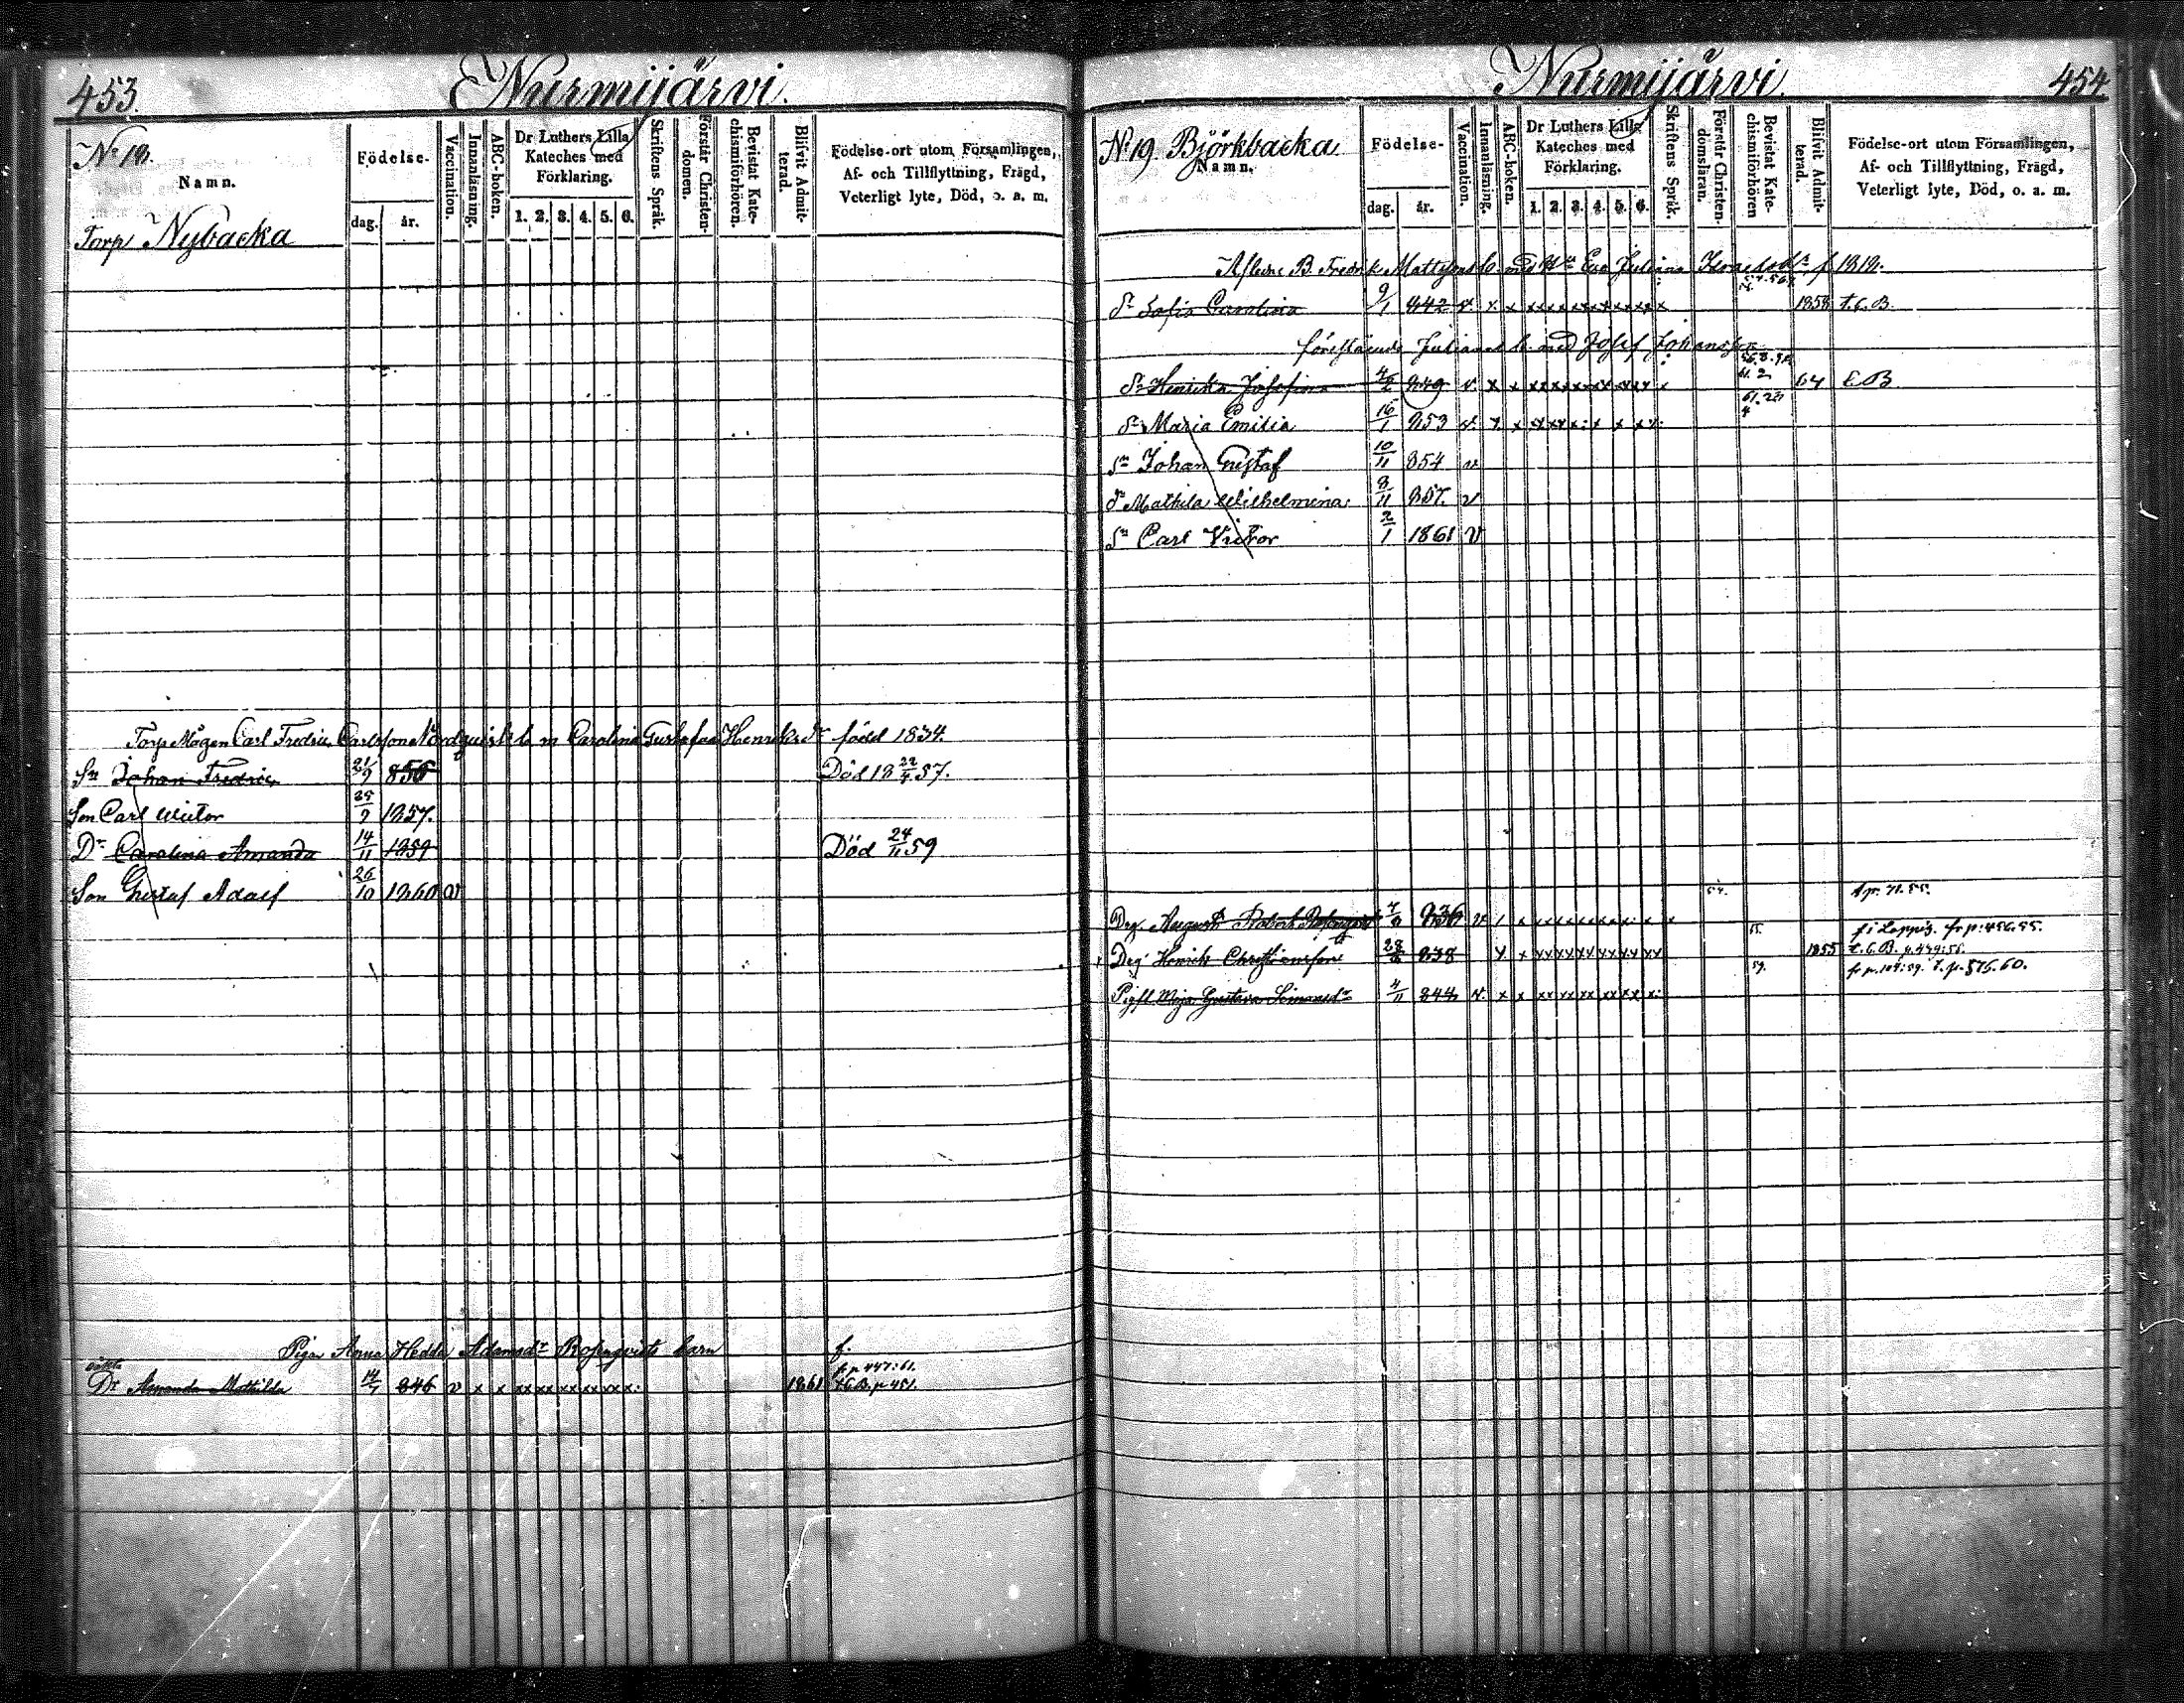 453.
Nurmijärvi.
No 18.
Namn.
Torp Nybacka
Födelse-
dag. år.
Vaccination.
Innanläsning.
ABC-boken.
Dr Luthers Lilla
Kateches med
Förklaring.
1. 2. 3. 4. 5. 6.
Skriftens Språk.
Förstår Christen-
domen.
Bevistat Kate-
chismiförhören.
Blifvit Admit-
terad.
Födelse-ort utom Församlingen,
Af- och Tillflyttning, Frägd,
Veterligt lyte, Död, o. a. m.
Torp Mågen Carl Fredric Carlsson Nordquist b. m Carolina Gustafva Henriks dr född 1834.
Sn Johan Fredric 21/9 856 Död 18 22/4 57.
Son Carl Victor 25/9 1857.
Dr Carolina Amanda 14/11 1859 Död 24/11 59
Son Gustaf Adolf 26/10 1860 v
Pigan Anna Hedda Adamsdr Rosenqvists barn f.
oäkta fr p 447:61.
Dr Amanda Mathilda 846 v x x xx xx xx xx xx x: 1861 t.C.B. p 451.
Nurmijärvi.
454
No 19 Björkbacka
Namn.
Födelse-
dag. år.
Vaccination.
Innanläsning.
ABC-boken.
Dr Luthers Lilla
Kateches med
Förklaring.
1. 2. 3. 4. 5. 6.
Skriftens Språk.
Förstår Christen-
domsläran.
Bevistat Kate-
chismiförhören
Blifvit Admit-
terad.
Födelse-ort utom Församlingen,
Af- och Tillflyttning, Frägd,
Veterligt lyte, Död, o. a. m.
Aflidne B. Fredrik Mattssons b. med Eva Juliana f 1818.
Dr Sofia Carolina 9/1 842 v. x x xx xx xx xx xx xx x 1858 t.C.B.
förestående Julianas b. med Josef Johansson
Dr Henrika Josefina 4/2 849 v. x x xx xx xx xx xx x 64 C.B
Dr Maria Emilia 16/1 853 v. x x
Sn Johan Gustaf 10/11 854 v
Dr Mathilda Wilhelmina 8/11 857. v
Sn Carl Victor 2/1 1861 v
54. t p. 71.55.
Drg. August Robert 836 v x xx xx xx xx x: x x
55. f i Loppis. fr p: 456.55.
Drg Henrik Christiansson 28/ 838 x x xx xx xx xx xx xx 1855 t. C.B. p. 449:55.
59. fr p. 109:59. t. p. 576.60.
Pigfl. Maja Gustava Simonsdr 4/11 844 v. x x xx xx xx xx xx x: